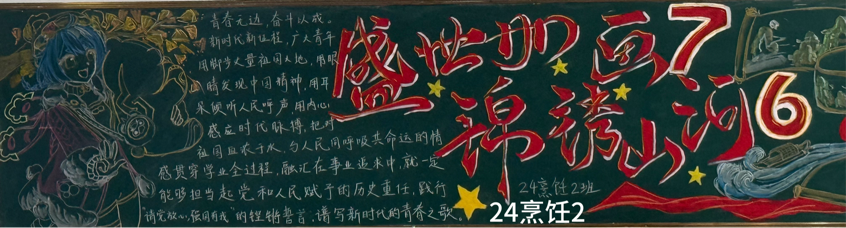 青春无边，奋斗以成。
新时代新征程，广大青年
用脚步丈量祖国大地，用眼
睛发现中国精神，用耳
朵倾听人民呼声，用内心
感应时代脉搏，把对
祖国血浓于水、与人民同呼吸共命运的情
感贯穿学业全过程，融汇在事业追求中，就一定
能够担当起党和人民赋予的历史重任，践行
“请党放心，强国有我”的铿锵誓言，谱写新时代的青春之歌。
盛世如画
锦绣山河
76
24烹饪2班
24烹饪2